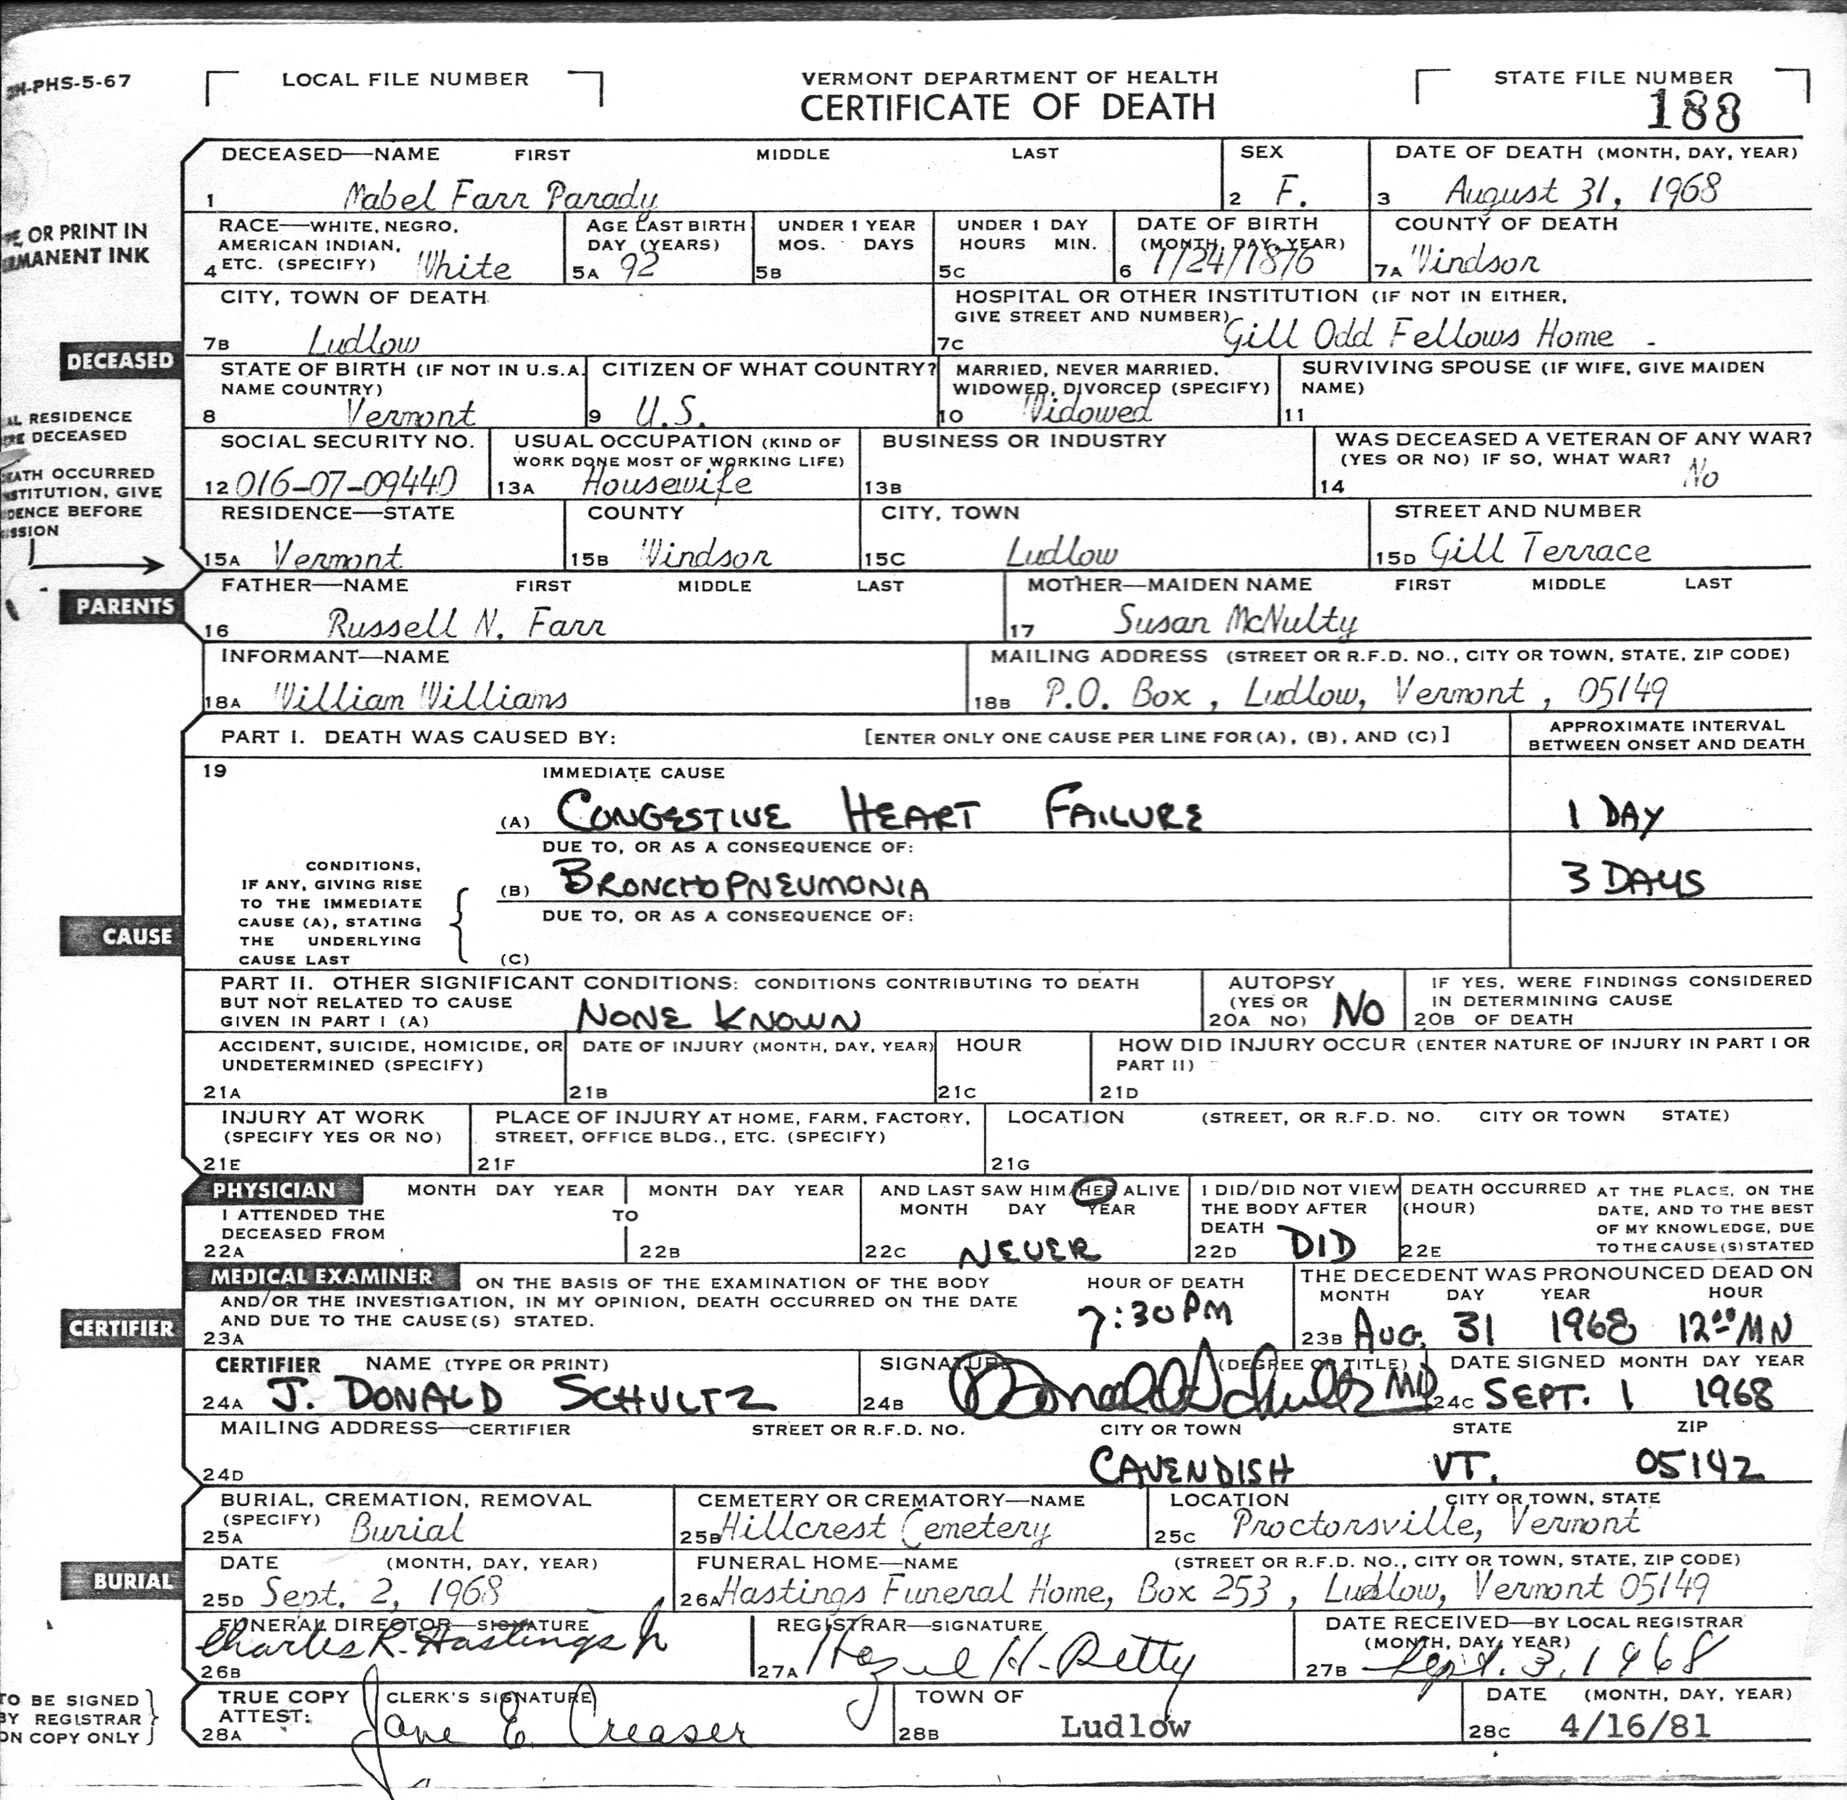 VERMONT DEPARTMENT OF HEALTH
CERTIFICATE OF DEATH
-PHS-5-67
LOCAL FILE NUMBER
STATE FILE NUMBER
188
DECEASED—NAME FIRST MIDDLE LAST
1 Mabel Farr Parady
SEX
2 F.
DATE OF DEATH (MONTH, DAY, YEAR)
3 August 31, 1968
OR PRINT IN
MANENT INK
RACE—WHITE, NEGRO,
AMERICAN INDIAN,
4 ETC. (SPECIFY) White
AGE LAST BIRTH
DAY (YEARS)
5A 92
UNDER 1 YEAR
MOS. DAYS
5B
UNDER 1 DAY
HOURS MIN.
5C
DATE OF BIRTH
(MONTH, DAY, YEAR)
6 7/24/1876
COUNTY OF DEATH
7A Windsor
CITY, TOWN OF DEATH
7B Ludlow
HOSPITAL OR OTHER INSTITUTION (IF NOT IN EITHER,
GIVE STREET AND NUMBER)
7C Gill Odd Fellows Home -
DECEASED
STATE OF BIRTH (IF NOT IN U.S.A.
NAME COUNTRY)
8 Vermont
CITIZEN OF WHAT COUNTRY?
9 U.S.
MARRIED, NEVER MARRIED,
WIDOWED, DIVORCED (SPECIFY)
10 Widowed
SURVIVING SPOUSE (IF WIFE, GIVE MAIDEN
NAME)
11
RESIDENCE
DECEASED
DEATH OCCURRED
STITUTION, GIVE
DENCE BEFORE
SSION
SOCIAL SECURITY NO.
12 016-07-0944D
USUAL OCCUPATION (KIND OF
WORK DONE MOST OF WORKING LIFE)
13A Housewife
BUSINESS OR INDUSTRY
13B
WAS DECEASED A VETERAN OF ANY WAR?
(YES OR NO) IF SO, WHAT WAR?
14 No
RESIDENCE—STATE
15A Vermont
COUNTY
15B Windsor
CITY, TOWN
15C Ludlow
STREET AND NUMBER
15D Gill Terrace
PARENTS
FATHER—NAME FIRST MIDDLE LAST
16 Russell N. Farr
MOTHER—MAIDEN NAME FIRST MIDDLE LAST
17 Susan McNulty
INFORMANT—NAME
18A William Williams
MAILING ADDRESS (STREET OR R.F.D. NO., CITY OR TOWN, STATE, ZIP CODE)
18B P.O. Box , Ludlow, Vermont , 05149
PART I. DEATH WAS CAUSED BY: [ENTER ONLY ONE CAUSE PER LINE FOR (A), (B), AND (C)]
APPROXIMATE INTERVAL
BETWEEN ONSET AND DEATH
19
IMMEDIATE CAUSE
(A) CONGESTIVE HEART FAILURE 1 DAY
DUE TO, OR AS A CONSEQUENCE OF:
(B) BRONCHOPNEUMONIA 3 DAYS
DUE TO, OR AS A CONSEQUENCE OF:
(C)
CONDITIONS,
IF ANY, GIVING RISE
TO THE IMMEDIATE
CAUSE (A), STATING
THE UNDERLYING
CAUSE LAST
CAUSE
PART II. OTHER SIGNIFICANT CONDITIONS: CONDITIONS CONTRIBUTING TO DEATH
BUT NOT RELATED TO CAUSE
GIVEN IN PART I (A) NONE KNOWN
AUTOPSY
(YES OR
20A NO) NO
IF YES, WERE FINDINGS CONSIDERED
IN DETERMINING CAUSE
20B OF DEATH
ACCIDENT, SUICIDE, HOMICIDE, OR
UNDETERMINED (SPECIFY)
21A
DATE OF INJURY (MONTH, DAY, YEAR)
21B
HOUR
21C
HOW DID INJURY OCCUR (ENTER NATURE OF INJURY IN PART I OR
PART II)
21D
INJURY AT WORK
(SPECIFY YES OR NO)
21E
PLACE OF INJURY AT HOME, FARM, FACTORY,
STREET, OFFICE BLDG., ETC. (SPECIFY)
21F
LOCATION (STREET, OR R.F.D. NO. CITY OR TOWN STATE)
21G
PHYSICIAN MONTH DAY YEAR
I ATTENDED THE
DECEASED FROM
22A
MONTH DAY YEAR
TO
22B
AND LAST SAW HIM/HER ALIVE
MONTH DAY YEAR
22C NEVER
I DID/DID NOT VIEW
THE BODY AFTER
DEATH
22D DID
DEATH OCCURRED
(HOUR)
22E
AT THE PLACE, ON THE
DATE, AND TO THE BEST
OF MY KNOWLEDGE, DUE
TO THE CAUSE(S) STATED
MEDICAL EXAMINER ON THE BASIS OF THE EXAMINATION OF THE BODY
AND/OR THE INVESTIGATION, IN MY OPINION, DEATH OCCURRED ON THE DATE
AND DUE TO THE CAUSE(S) STATED.
23A
HOUR OF DEATH
7:30 PM
THE DECEDENT WAS PRONOUNCED DEAD ON
MONTH DAY YEAR HOUR
23B AUG. 31 1968 12 00 MN
CERTIFIER
CERTIFIER NAME (TYPE OR PRINT)
24A J. DONALD SCHULTZ
SIGNATURE (DEGREE OR TITLE)
24B J Donald Schultz MD
DATE SIGNED MONTH DAY YEAR
24C SEPT. 1 1968
MAILING ADDRESS—CERTIFIER STREET OR R.F.D. NO. CITY OR TOWN STATE ZIP
24D CAVENDISH VT. 05142
BURIAL, CREMATION, REMOVAL
(SPECIFY)
25A Burial
CEMETERY OR CREMATORY—NAME
25B Hillcrest Cemetery
LOCATION CITY OR TOWN, STATE
25C Proctorsville, Vermont
BURIAL
DATE (MONTH, DAY, YEAR)
25D Sept. 2, 1968
FUNERAL HOME—NAME (STREET OR R.F.D. NO., CITY OR TOWN, STATE, ZIP CODE)
26A Hastings Funeral Home, Box 253 , Ludlow, Vermont 05149
FUNERAL DIRECTOR—SIGNATURE
26B Charles R. Hastings Jr
REGISTRAR—SIGNATURE
27A Hazel H. Petty
DATE RECEIVED—BY LOCAL REGISTRAR
(MONTH, DAY, YEAR)
27B Sept. 3, 1968
TO BE SIGNED
BY REGISTRAR
ON COPY ONLY
TRUE COPY
ATTEST:
28A
CLERK'S SIGNATURE
Jane E. Creaser
TOWN OF
28B Ludlow
DATE (MONTH, DAY, YEAR)
28C 4/16/81